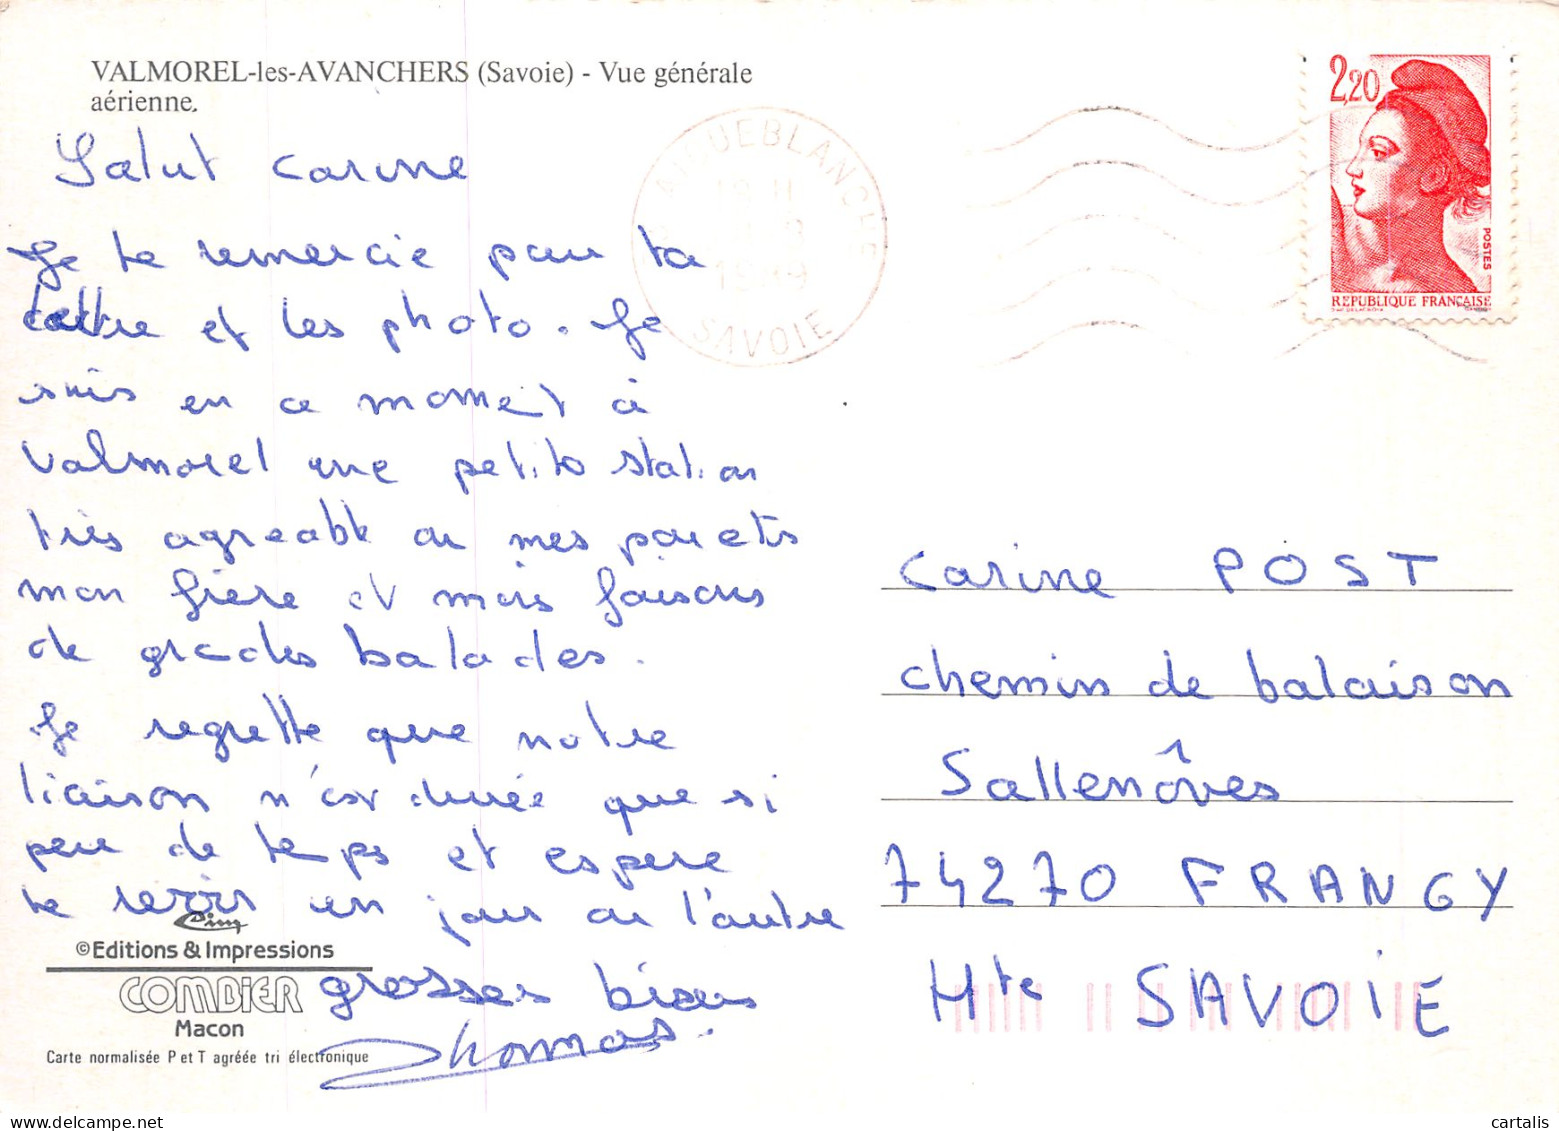 VALMOREL-les-AVANCHERS (Savoie) - Vue générale
aérienne.
Salut Carine
Je te remercie pour ta
lettre et les photo. Je
suis en ce moment à
Valmorel une petite station
très agréable ou mes parents
mon frère et mois faisons
de grades balades.
Je regrette que notre
liaison n'est durée que si
peu de temps et espere
te revoir un jour ou l'autre
grosses bisous
Thomas.
Cim
©Editions & Impressions
COMBIER
Macon
Carte normalisée P et T agréée tri électronique
UEBLANCHE
SAVOIE
2,20
POSTES
REPUBLIQUE FRANÇAISE
Carine POST
chemin de balaison
Sallenôves
74270 FRANGY
Hte SAVOIE
cartalis